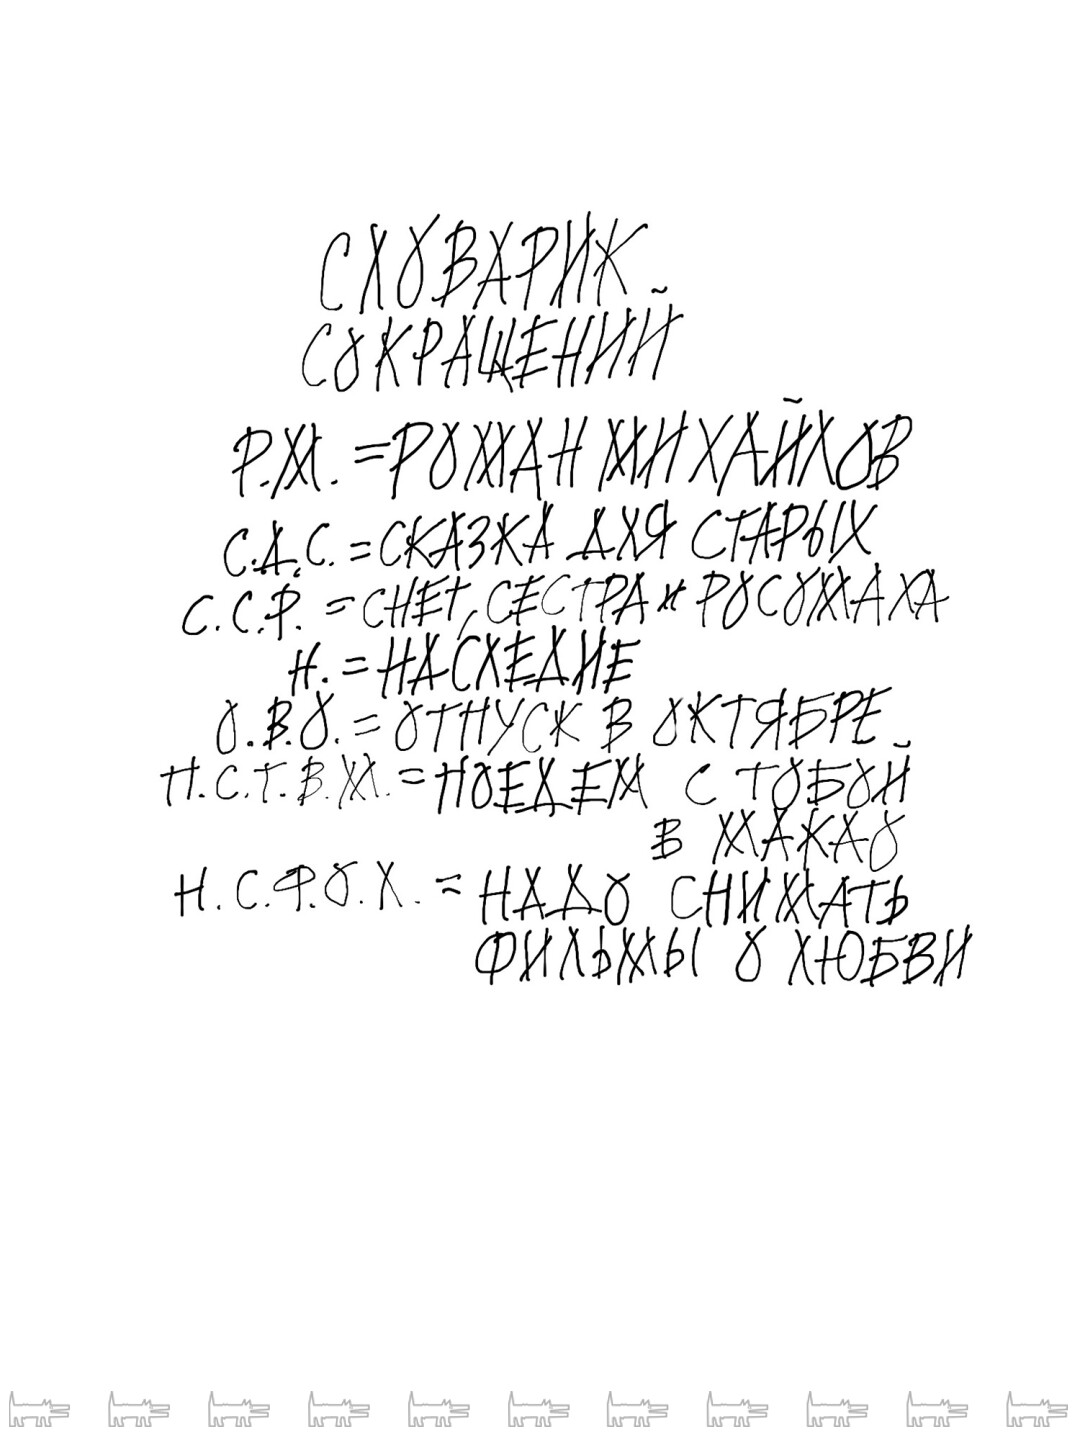 СЛОВАРИК
СОКРАЩЕНИЙ
Р.М. = РОМАН МИХАЙЛОВ
С.Д.С. = СКАЗКА ДЛЯ СТАРЫХ
С.С.Р. = СНЕГ, СЕСТРА И РОСОМАХА
Н. = НАСЛЕДИЕ
О.В.О. = ОТПУСК В ОКТЯБРЕ
П.С.Т.В.М. = ПОЕДЕМ С ТОБОЙ
В МАКАО
Н.С.Ф.О.Л. = НАДО СНИМАТЬ
ФИЛЬМЫ О ЛЮБВИ